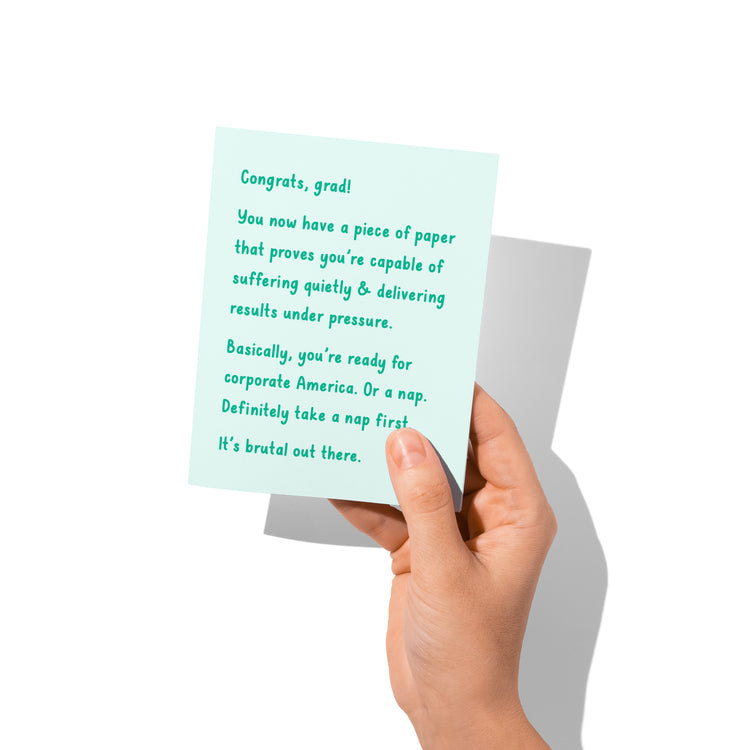 Congrats, grad!
You now have a piece of paper
that proves you're capable of
suffering quietly & delivering
results under pressure.
Basically, you're ready for
corporate America. Or a nap.
Definitely take a nap first
It's brutal out there.